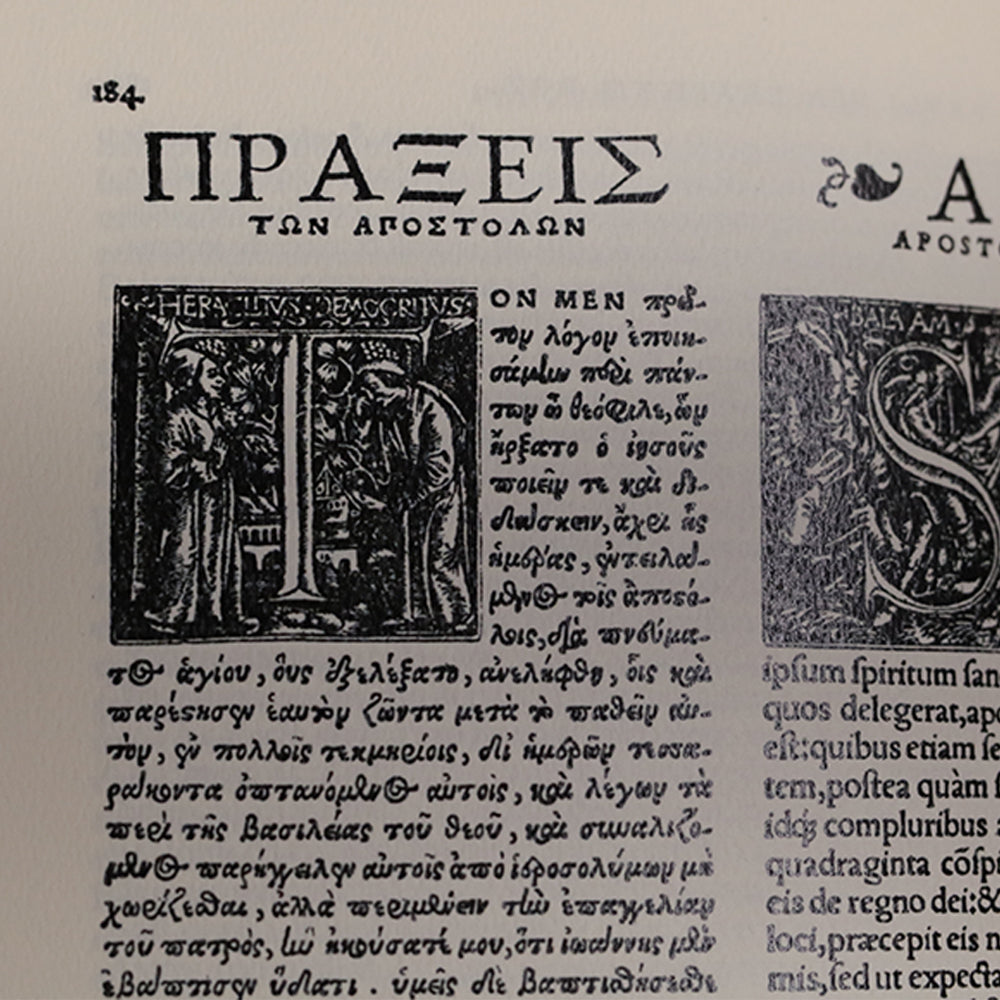 184.
ΠΡΑΞΕΙΣ
ΤΩΝ ΑΠΟΣΤΟΛΩΝ
HERACLITVS DEMOCRITVS
T
ΟΝ ΜΕΝ πρῶ-
τον λόγον ἐποιη-
σάμην περὶ πάν-
των ὦ θεόφιλε, ὧν
ἤρξατο ὁ ἰησοῦς
ποιεῖν τε καὶ δι-
δάσκειν, ἄχρι ἧς
ἡμέρας, ἐντειλά-
μενος τοῖς ἀποσό-
λοις, διὰ πνεύμα-
τος ἁγίου, οὓς ἐξελέξατο, ἀνελήφθη, οἷς καὶ
παρέστησεν ἑαυτὸν ζῶντα μετὰ τὸ παθεῖν αὐ-
τὸν, ἐν πολλοῖς τεκμηρίοις, δι ἡμερῶν τεσσα-
ράκοντα ὀπτανόμενος αὐτοῖς, καὶ λέγων τὰ
περὶ τῆς βασιλείας τοῦ θεοῦ, καὶ συναλιζό-
μενος παρήγγειλεν αὐτοῖς ἀπὸ ἱεροσολύμων μὴ
χωρίζεσθαι, ἀλλὰ περιμένειν τὴν ἐπαγγελίαν
τοῦ πατρὸς, ἣν ἠκούσατέ μου, ὅτι ἰωάννης μὲν
ἐβάπτισεν ὕδατι. ὑμεῖς δὲ βαπτισθήσεσθε
A
APOSTO
BALAAM
S
ipsum spiritum san
quos delegerat, apo
est: quibus etiam se
tem, postea quàm
idq; compluribus
quadraginta cōspi
eis de regno dei: &
loci, præcepit eis n
mis, sed ut expecta